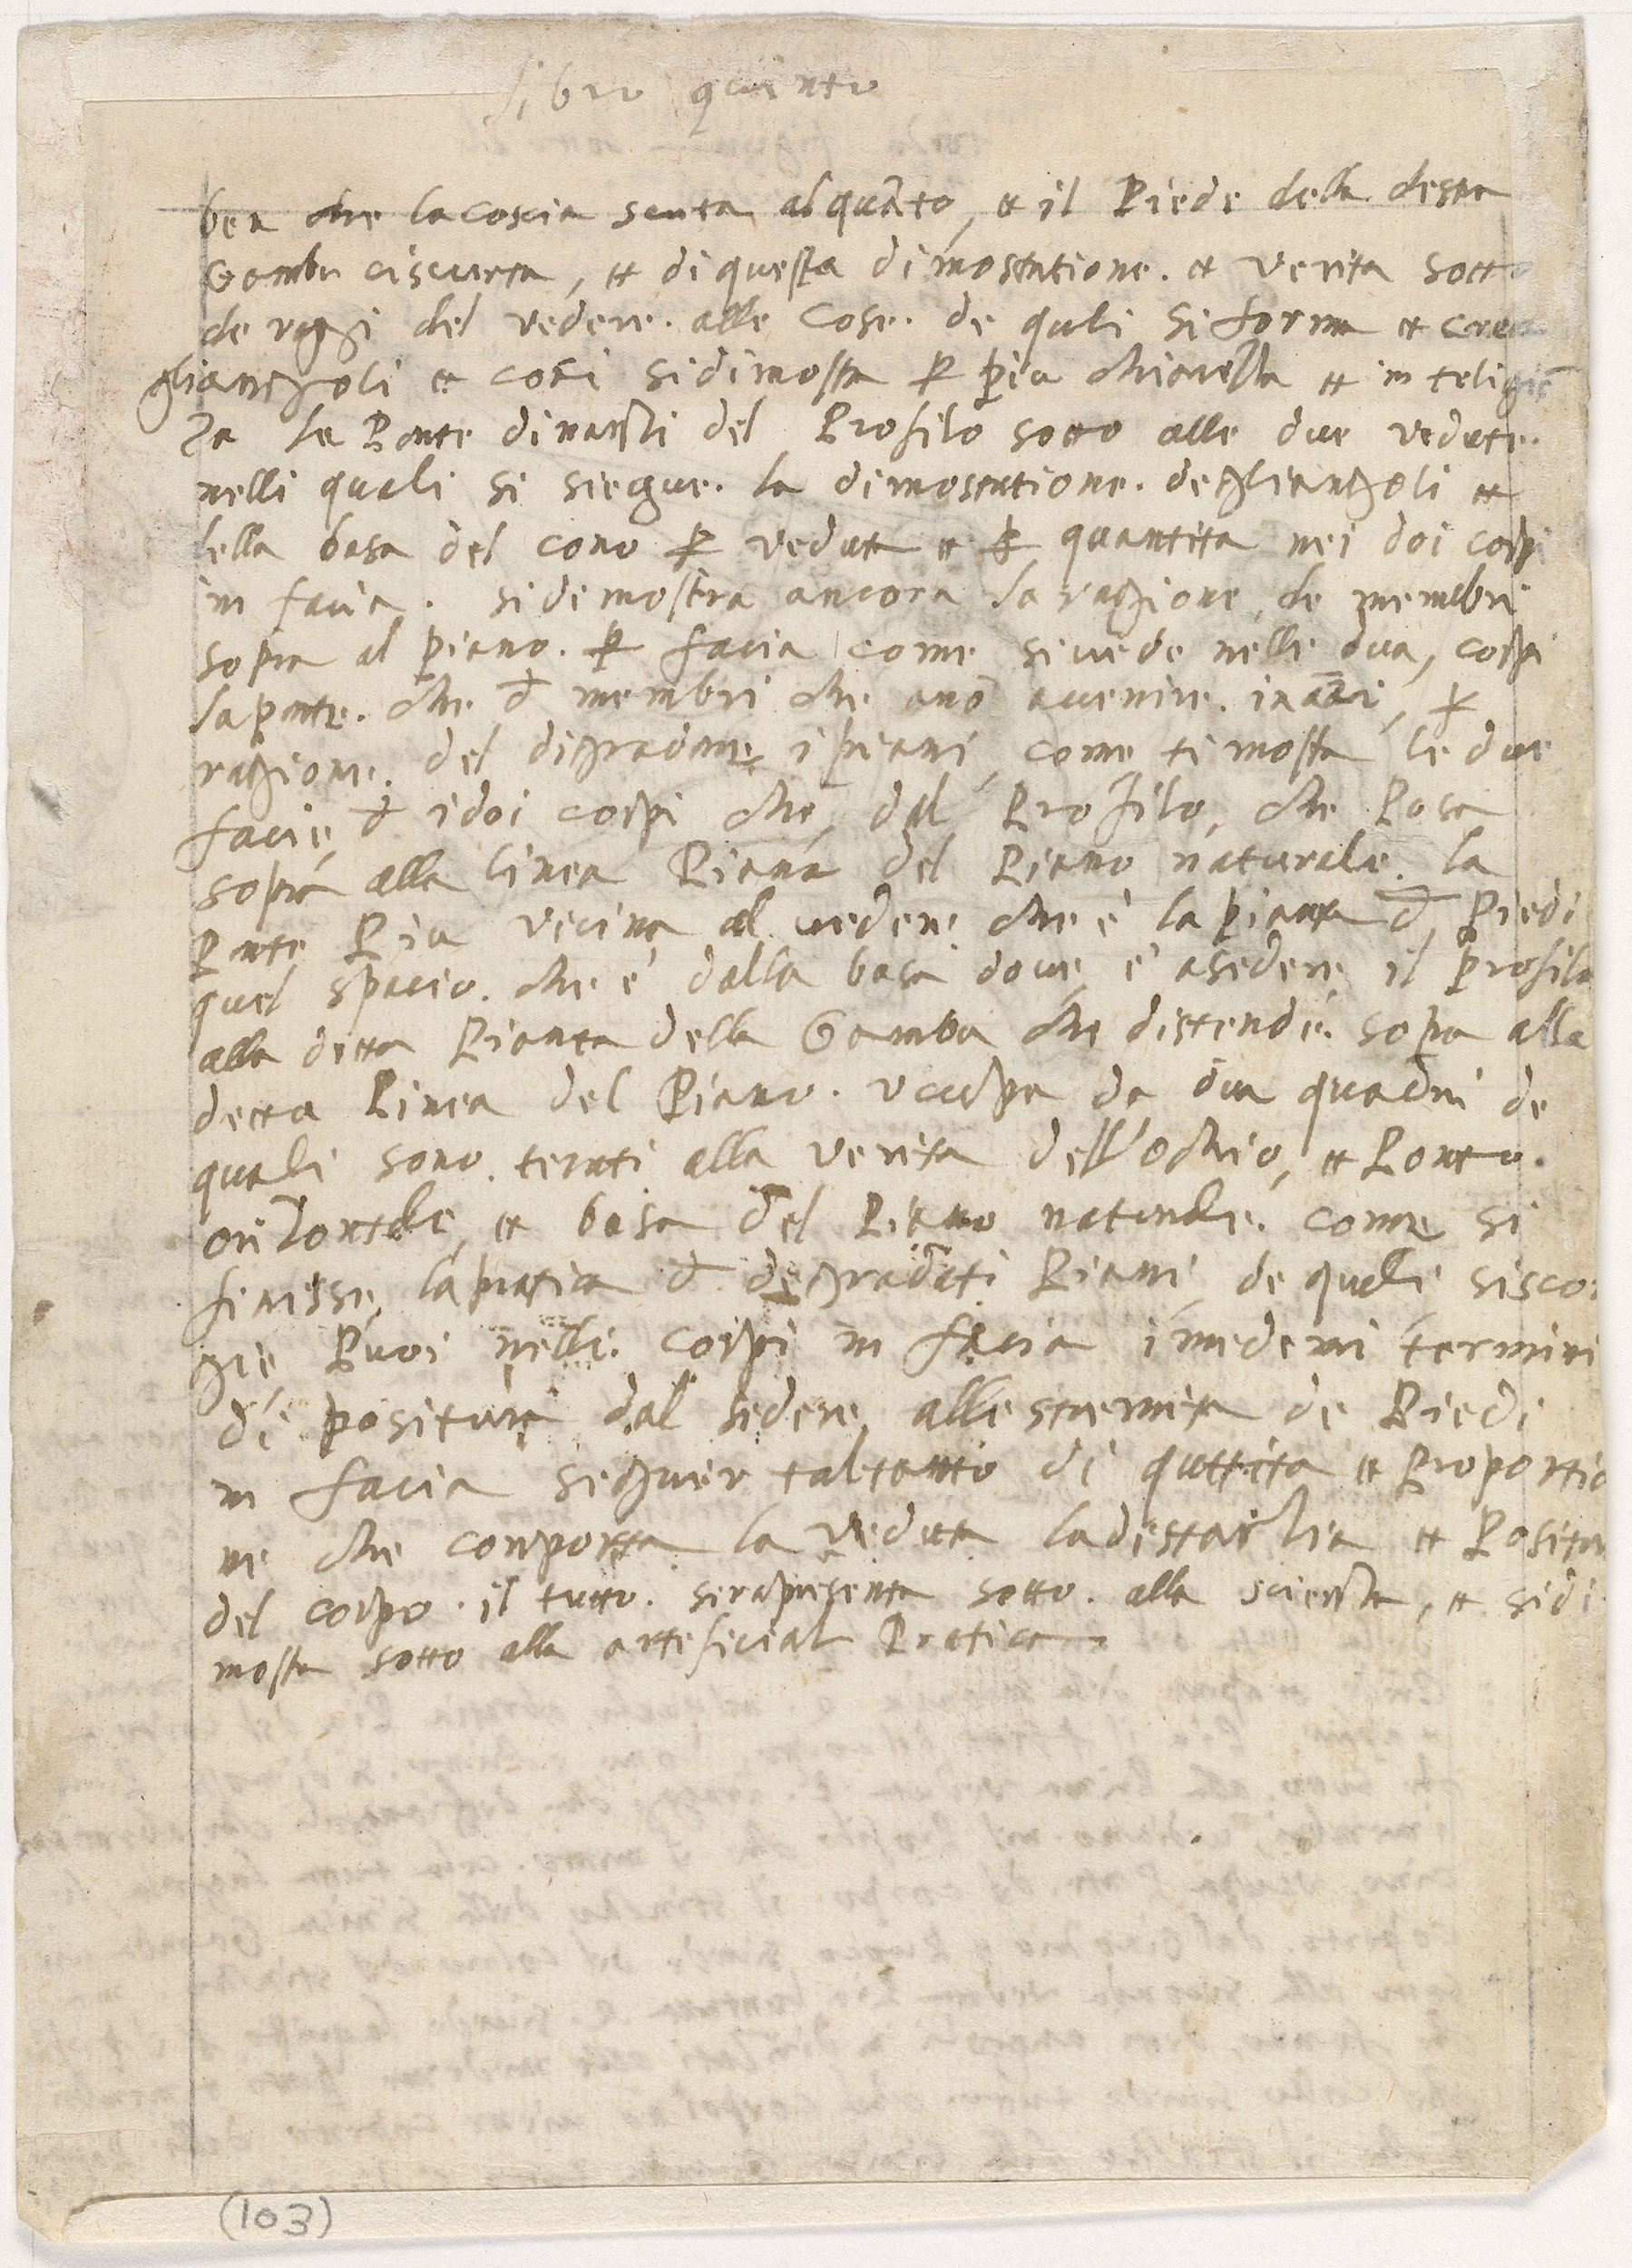 libro quinto
ben che la coscia scurta alquāto, et il Piede della destra
Gamba ci scurta, et di questa dimostratione. et verita sotto
de raggi del vedere. alle cose. de quali si forma et crea
gliangholi et così si dimostra ꝑ più chiarezza et inteligiē
Za le Ponte dinanzi del Profilo sotto alle due vedute.
nelli quali si siegue. la dimostratione. degliangholi et
della basa del cono ꝑ veduta et ꝑ quantita nei doi corpi
in facia. si demostra ancora la raghione de membri
sopra al piano. ꝑ facia come si vede nelle dua, corpi
la parte. che đ membri che ano avenire. ināzi, ꝑ
raghione. del dighradare i piani, come ti mostra le due
facie, đ i doi corpi che, dal Profilo, che Posa
sopra alla linea Piana del Piano naturale. la
Parte Piu vicina al vedere che è la pianta đ Piedi
quel spacio. che è dalla basa dove, è asedere il profilo
alla detta Pianta della Gamba che distende. sopra alla
detta Linea del Piano. ocupa da dua quadri de
quali sono. terati alla verita dell'ochio, et Ponto
oriZontale, et basa del Piano naturale. come si
finisse, la pratica đ deghradati Piani, de quali si scor
gie Puoi nelli. corpi in facia i medemi termini
di positura dal sedere alle stremita de Piedi
in facia seghuir tal tanto di quttita et Proportio
ne che comporta la veduta la distantia et Positura
del corpo. il tutto. se rapresenta sotto. alla scienza, et si di
mostra sotto alla arteficial Pratica.
(103)